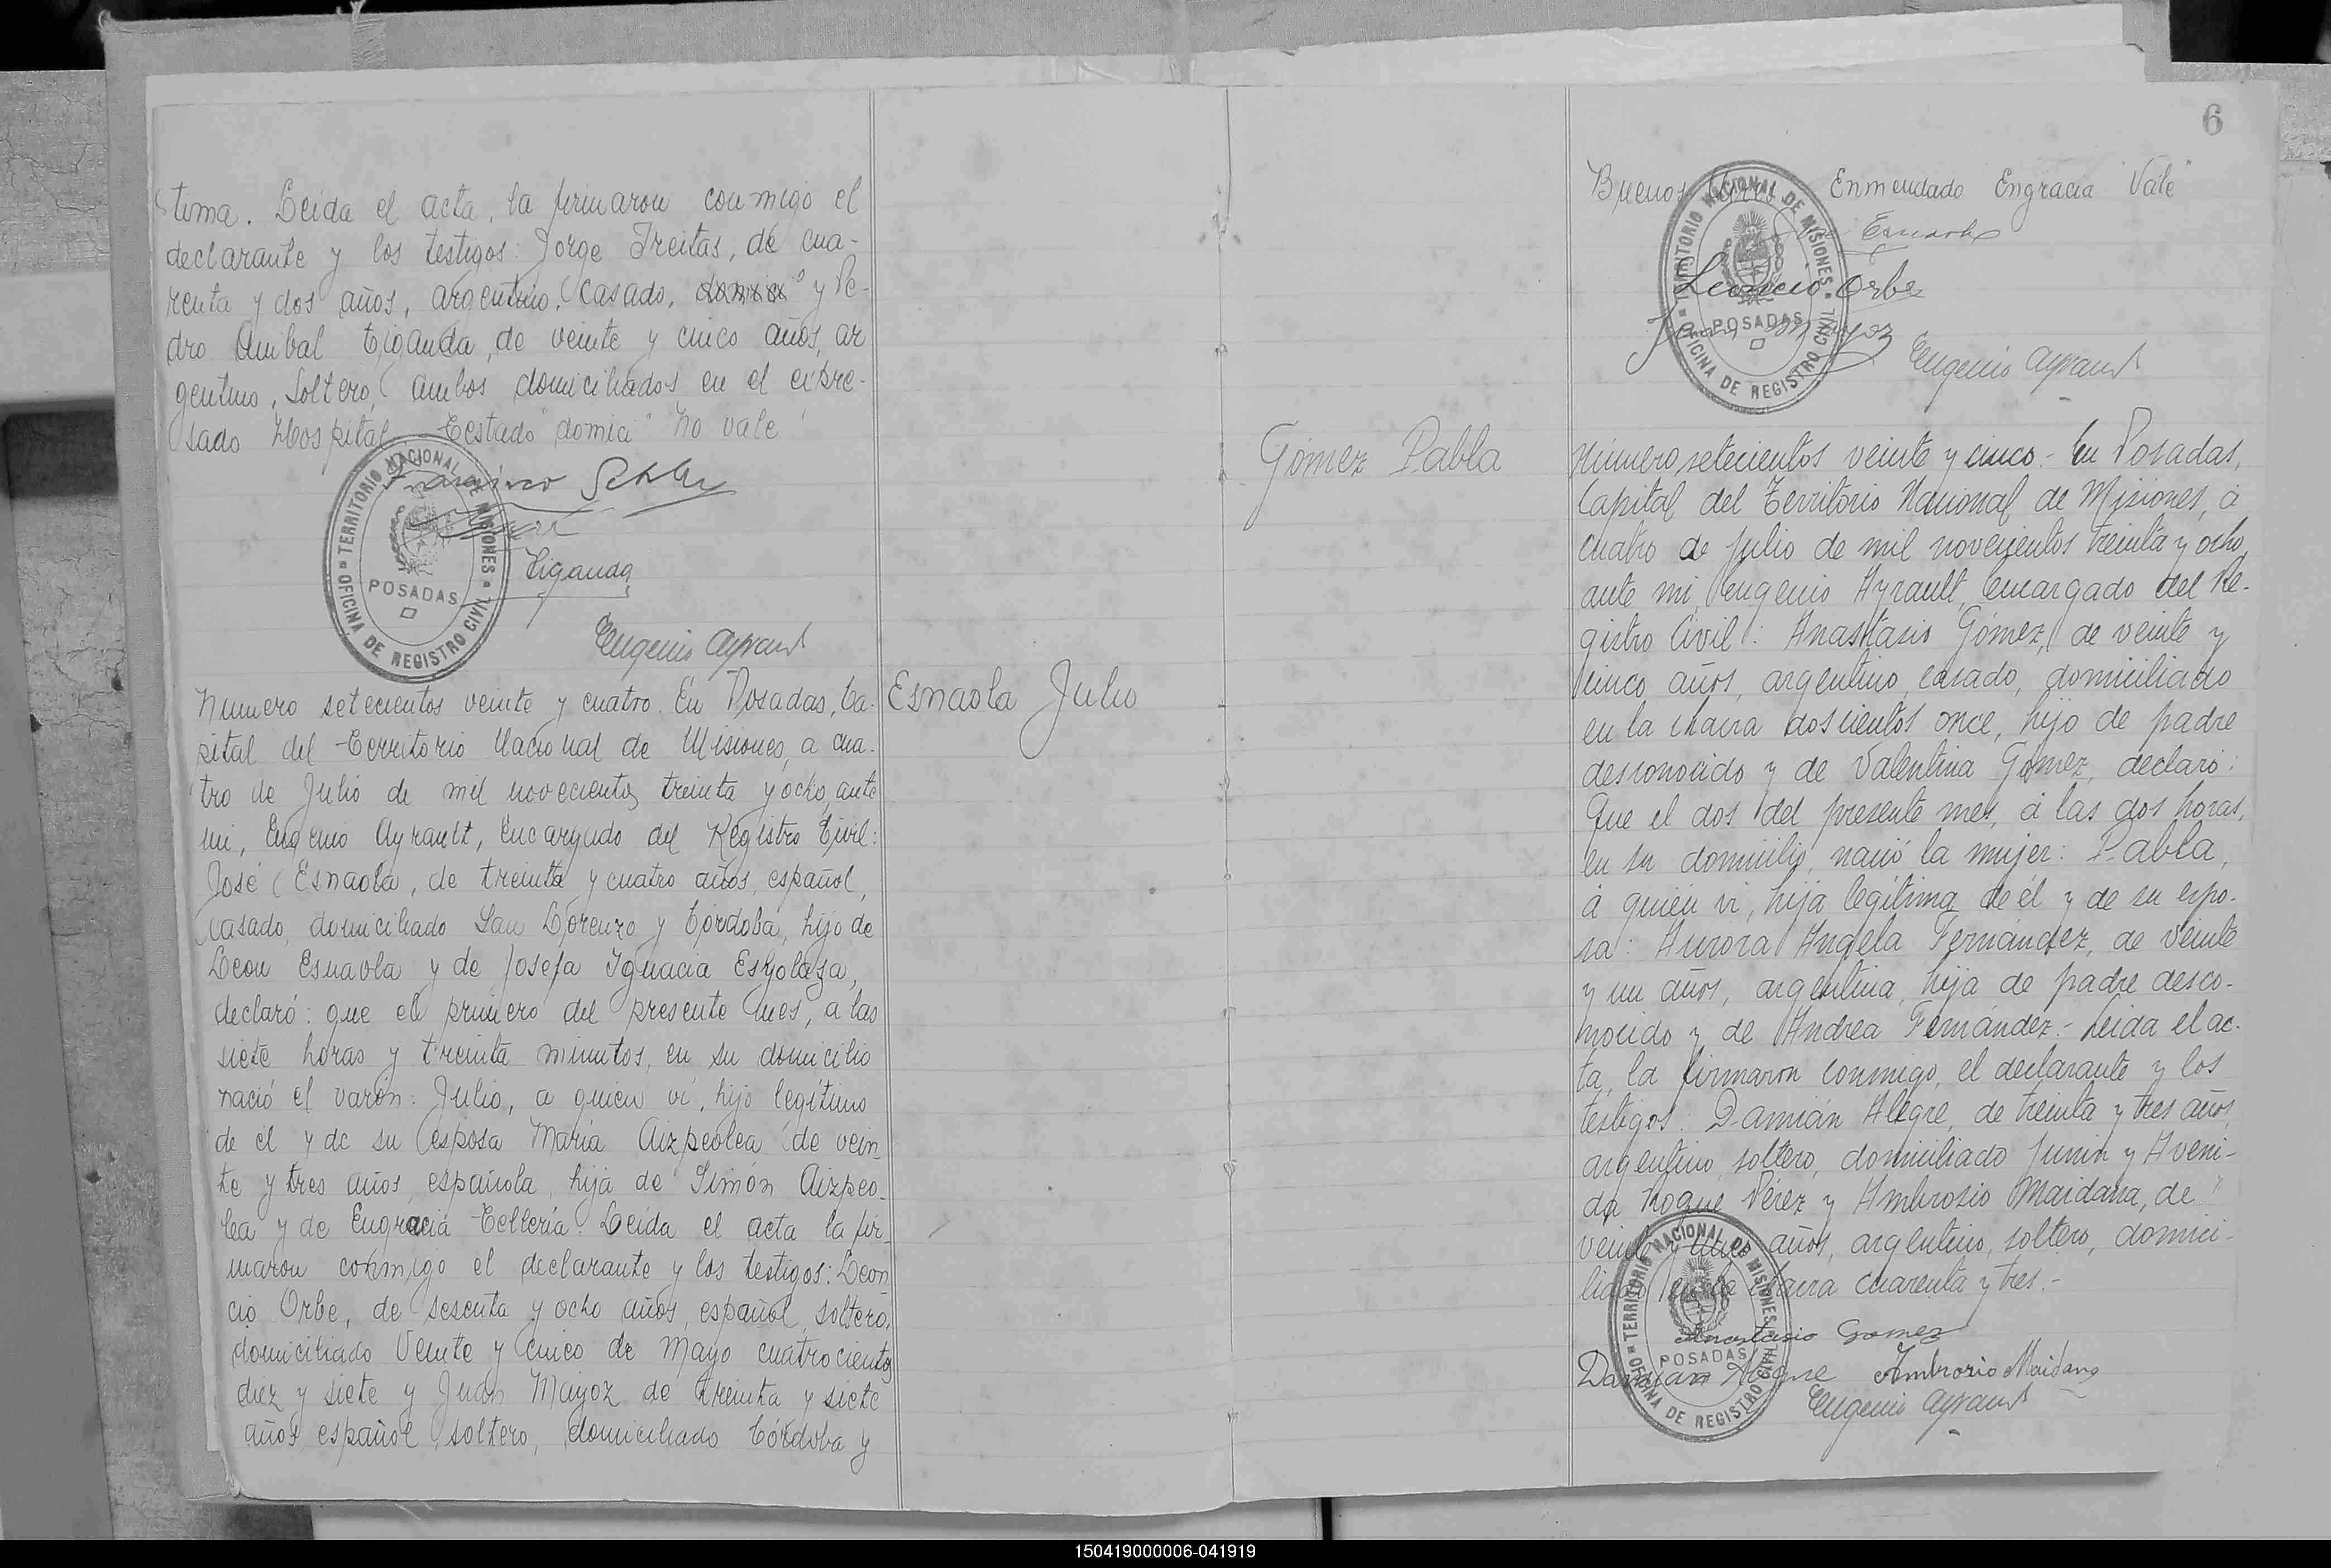 tima. Leida el acta, la firmaron conmigo el
declarante y los testigos: Jorge Freitas, de cua-
renta y dos años, argentino, casado, domici y Pe-
dro Anibal Eiganda, de veinte y cinco años, ar
gentino, soltero, ambos domiciliados en el expre-
sado Hospital. Testado "domici" no vale
TERRITORIO NACIONAL DE MISIONES
POSADAS
OFICINA DE REGISTRO CIVIL
Eiganda
Eugenio Ayrault
Numero setecientos veinte y cuatro. En Posadas, Ca-
pital del Territorio Nacional de Misiones, a cua-
tro de Julio de mil novecientos treinta y ocho, ante
mi, Eugenio Ayrault, Encargado del Registro Civil:
José Esnaola, de treinta y cuatro años, español,
casado, domiciliado San Lorenzo y Córdoba, hijo de
Leon Esnaola y de Josefa Ignacia
declaró: que el primero del presente mes, a las
siete horas y treinta minutos, en su domicilio
nació el varón: Julio, a quien vi, hijo legítimo
de el y de su esposa María Aizpeolea de vein-
te y tres años, española, hija de Simón Aizpeo-
lea y de Engracia Tellería. Leida el acta la fir-
maron conmigo el declarante y los testigos: Leon
cio Orbe, de sesenta y ocho años, español, soltero,
domiciliado Veinte y Cinco de Mayo cuatrocientos
diez y siete y Juan Mayoz de treinta y siete
años, español, soltero, domiciliado Córdoba y
Esnaola Julio
Gómez Pabla
6
Buenos Aires Enmendado Engracia "Vale"
J. Esnaola
Leoncio Orbe
Juan Mayoz
TERRITORIO NACIONAL DE MISIONES
POSADAS
OFICINA DE REGISTRO CIVIL
Eugenio Ayrault
Número setecientos veinte y cinco.- En Posadas,
Capital del Territorio Nacional de Misiones, á
cuatro de Julio de mil novecientos treinta y ocho,
ante mi, Eugenio Ayrault, Encargado del Re-
gistro Civil: Anastasio Gómez, de veinte y
cinco años, argentino, casado, domiciliado
en la chacra doscientos once, hijo de padre
desconocido y de Valentina Gómez, declaró:
Que el dos del presente mes, á las dos horas,
en su domicilio, nació la mujer: Pabla,
á quien vi, hija legítima de él y de su espo-
sa: Aurora Angela Fernández, de veinte
y un años, argentina, hija de padre desco-
nocido y de Andrea Fernández.- Leida el ac-
ta, la firmaron conmigo, el declarante y los
testigos: Damián Alegre, de treinta y tres años,
argentino, soltero, domiciliado Junin y Aveni-
da Roque Pérez y Ambrosio Maidana, de
veinte y años, argentino, soltero, domici-
liado en la chacra cuarenta y tres.-
Anastasio Gomez
Damian Alegre Ambrosio Maidana
TERRITORIO NACIONAL DE MISIONES
POSADAS
OFICINA DE REGISTRO CIVIL
Eugenio Ayrault
150419000006-041919